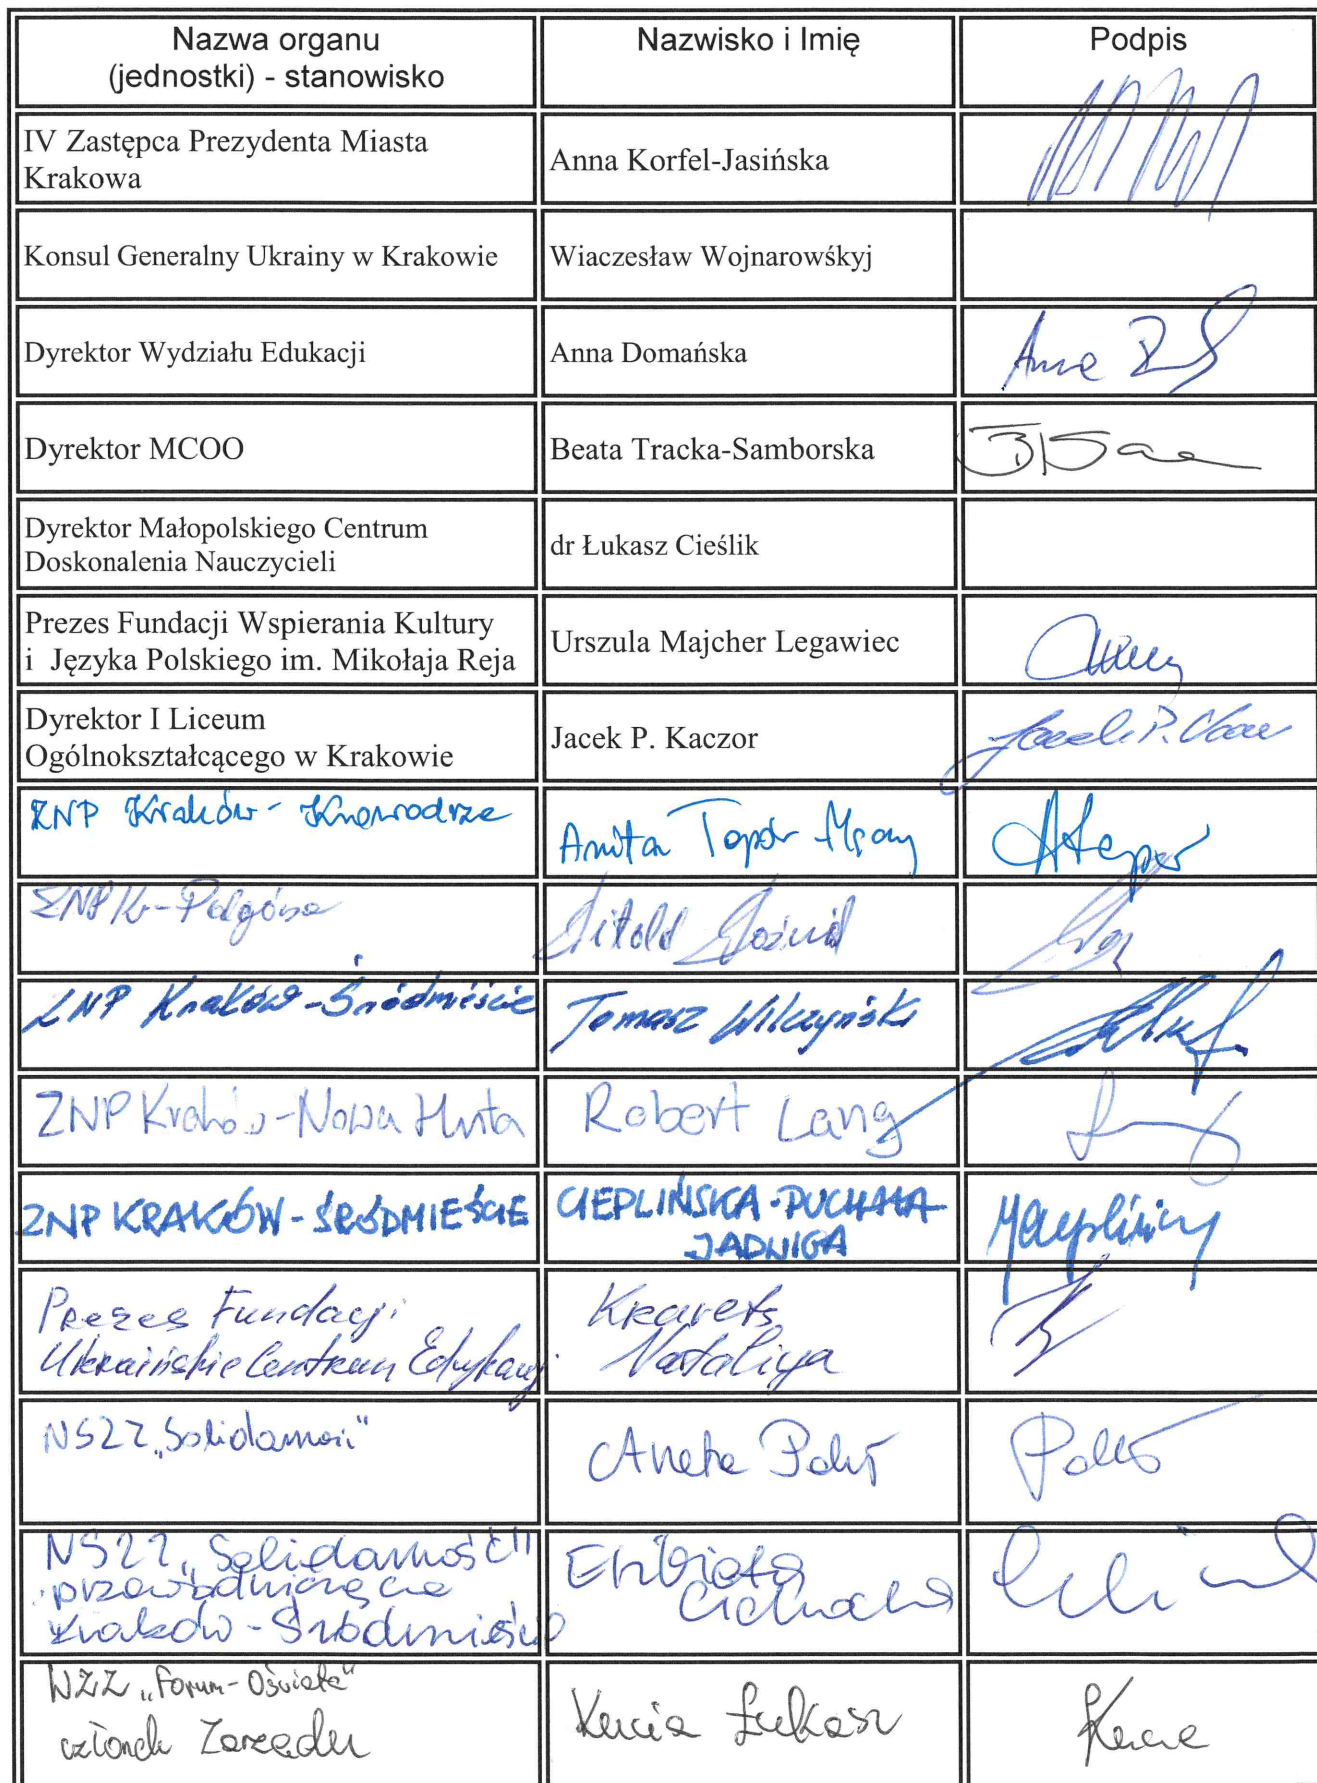 Nazwa organu
(jednostki) - stanowisko
Nazwisko i Imię
Podpis
IV Zastępca Prezydenta Miasta
Krakowa
Anna Korfel-Jasińska
Konsul Generalny Ukrainy w Krakowie
Wiaczesław Wojnarowśkyj
Dyrektor Wydziału Edukacji
Anna Domańska
Dyrektor MCOO
Beata Tracka-Samborska
Dyrektor Małopolskiego Centrum
Doskonalenia Nauczycieli
dr Łukasz Cieślik
Prezes Fundacji Wspierania Kultury
i Języka Polskiego im. Mikołaja Reja
Urszula Majcher Legawiec
Dyrektor I Liceum
Ogólnokształcącego w Krakowie
Jacek P. Kaczor
Jacek P.
ZNP Kraków-
Anita Topór
ZNP Kr-Podgórze
Witold
ZNP Kraków-Śródmieście
Tomasz Wilczyński
ZNP Kraków-Nowa Huta
Robert Lang
ZNP KRAKÓW-ŚRÓDMIEŚCIE
CIEPLIŃSKA-PUCHAŁA
JADWIGA
Prezes Fundacji
Ukraińskie Centrum Edukacji
Kravets
Nataliya
NSZZ „Solidarność"
Aneta
NSZZ „Solidarność"
przewodnicząca
Kraków-Śródmieście
Elżbieta
WZZ „Forum-Oświata"
członek Zarządu
Kucia Łukasz